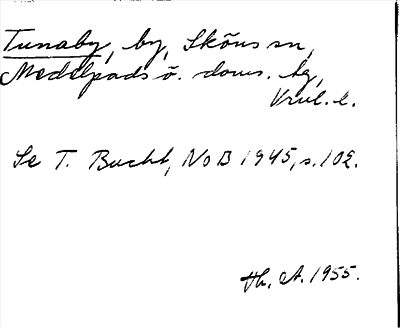 Tunaby, by, Sköns sn,
Medelpads ö. doms. hg,
Vnl. l.
Se T. Bucht, NoB 1945, s. 102.
Th. A. 1955.